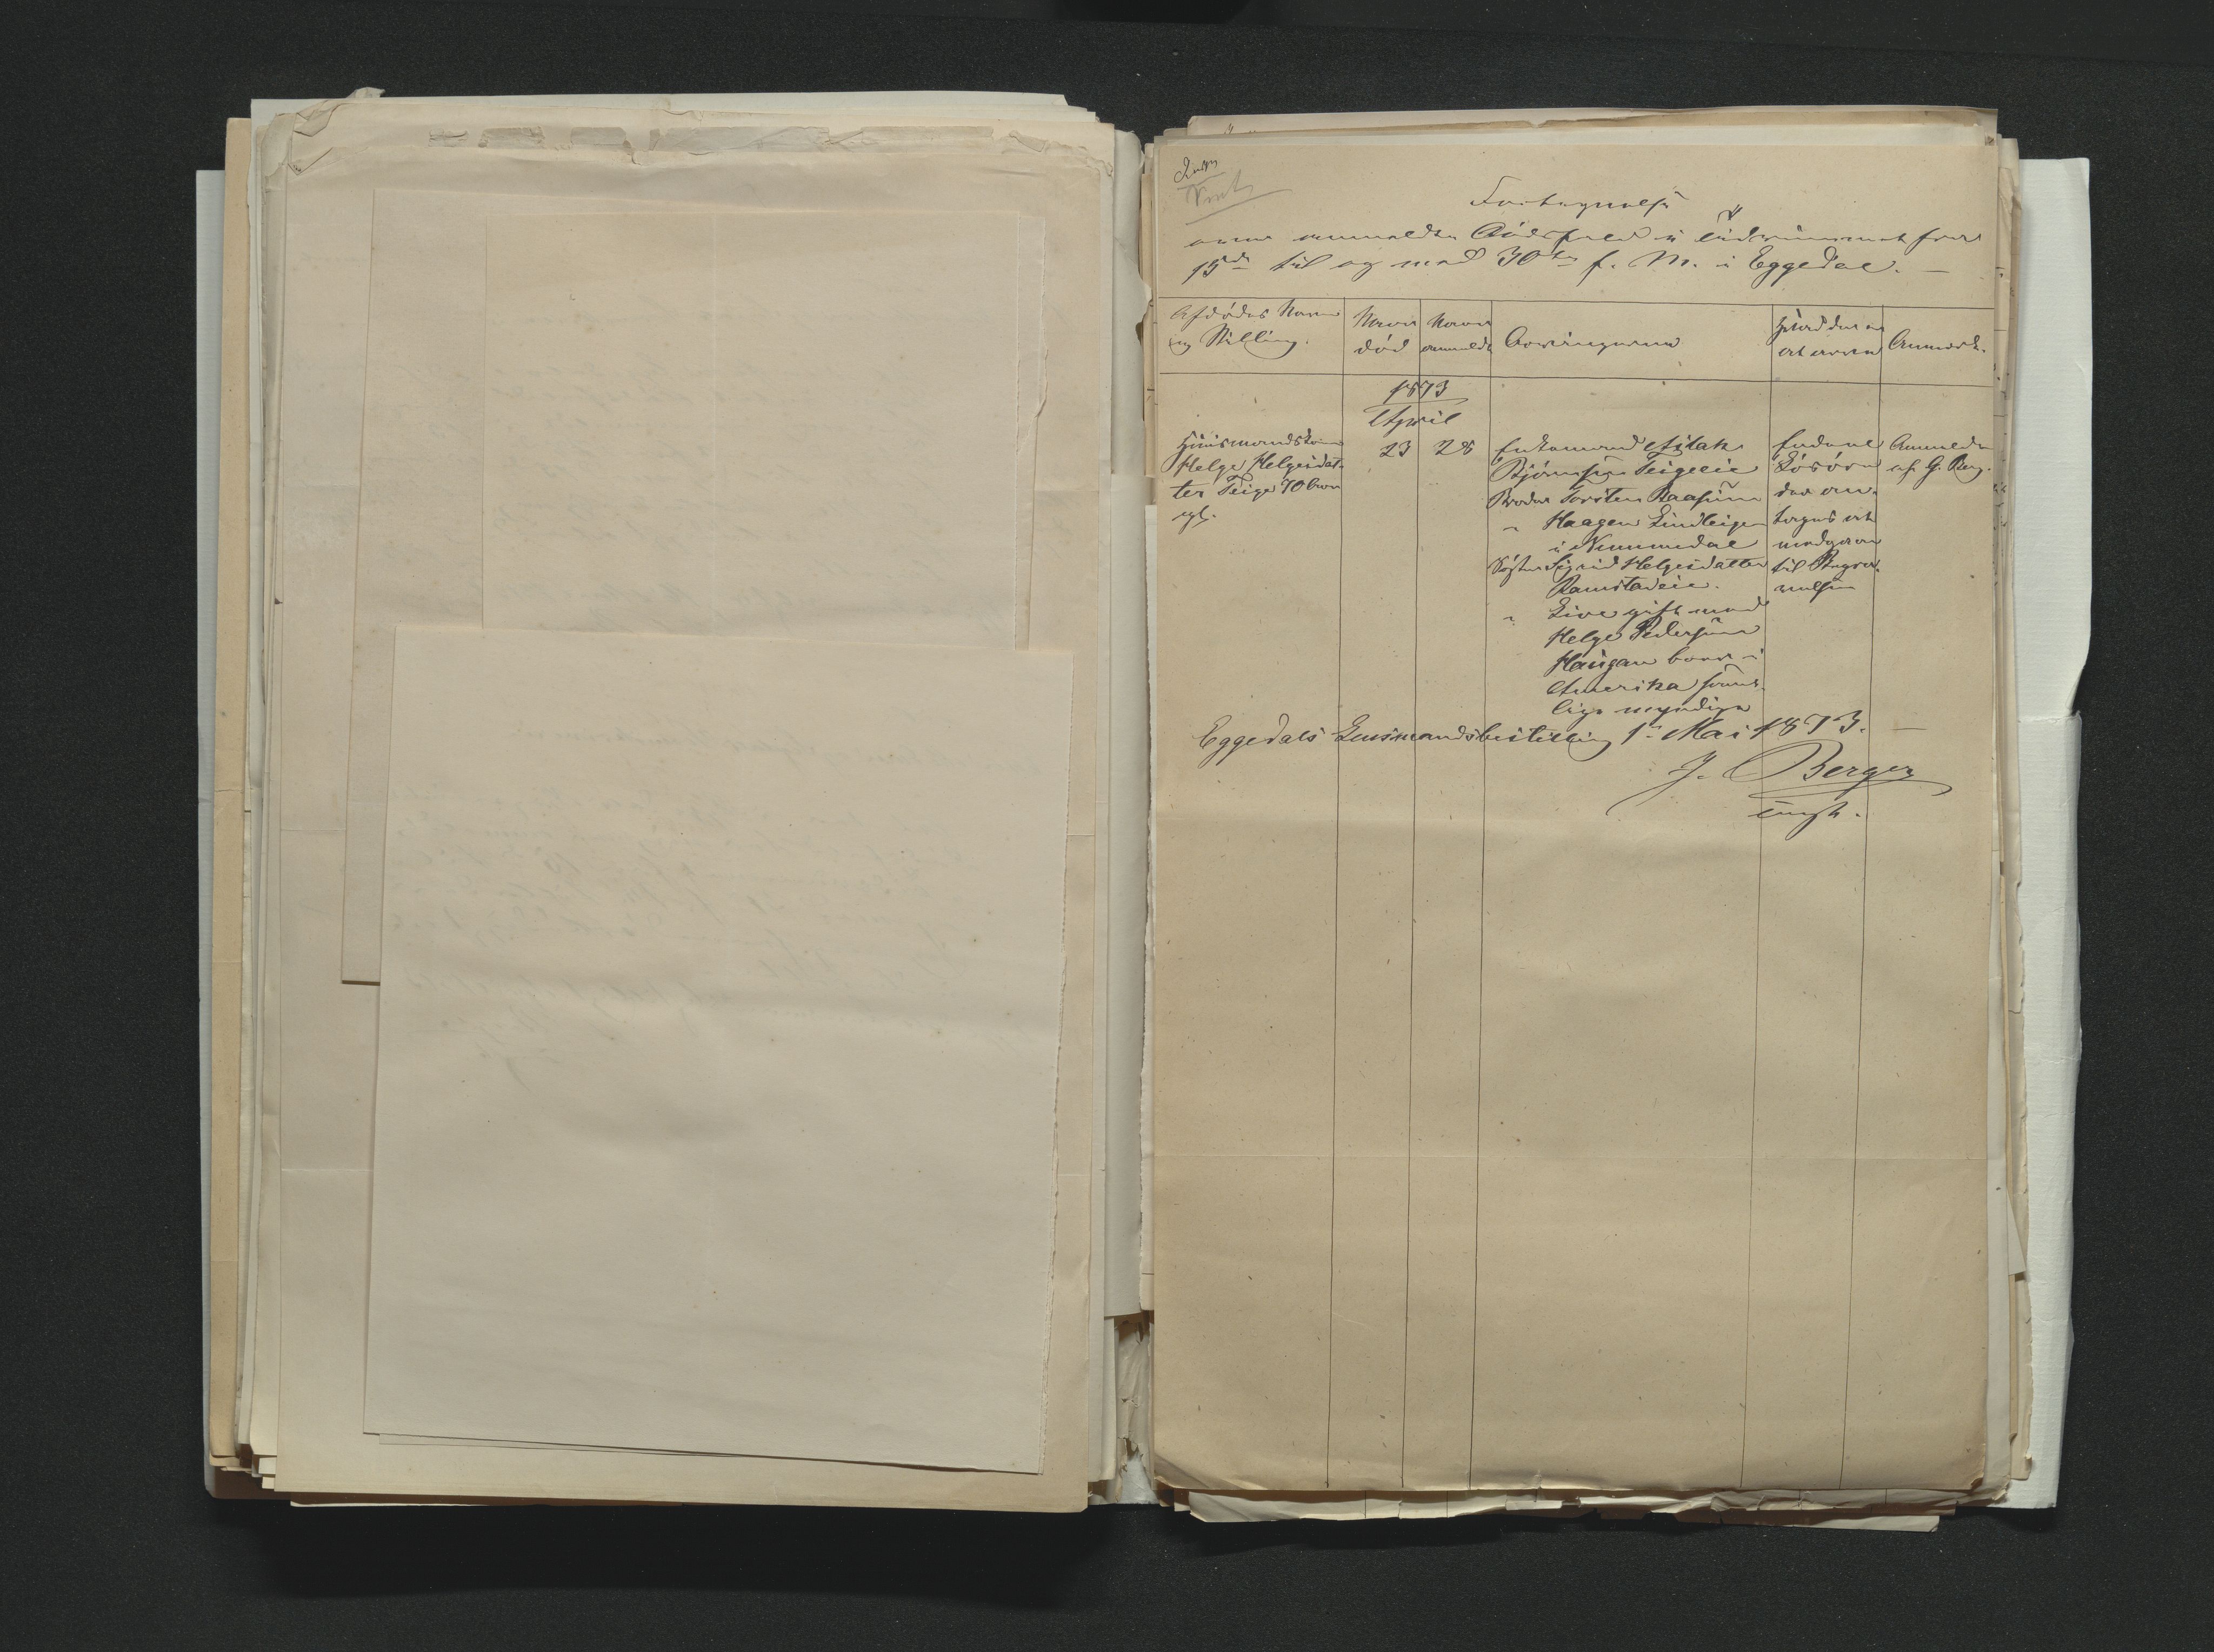 Fortegnelse
over anmeldte Dødsfald i Tidsrummet fra
15de til og med 30te f. M. i Eggedal. —
Afdødes Navn og Stilling.
Naar død
Naar anmeldt
Arvingerne
Hvad der er at arve
Anmærk.
1873
April
Huusmandskone
Helge Helgesdat-
ter Teige 70 Aar
gl.
23
28
Enkemand Aslak
Bjørnsen Teigeeie
Broder Torsten Raaen
" Haagen
i Nummedal
Søster Sigrid Helgesdatter
Ramstadeie.
" Live gift med
Helge Pedersen
Haugan boer i
Amerika sam-
lige myndige
Endeel
Løsøre
der an-
tages at
medgaae
til Begra-
velsen
Anmeldt
af G. Berg.
Eggedals Lensmandsbestilling 1. Mai 1873. —
J. Berger